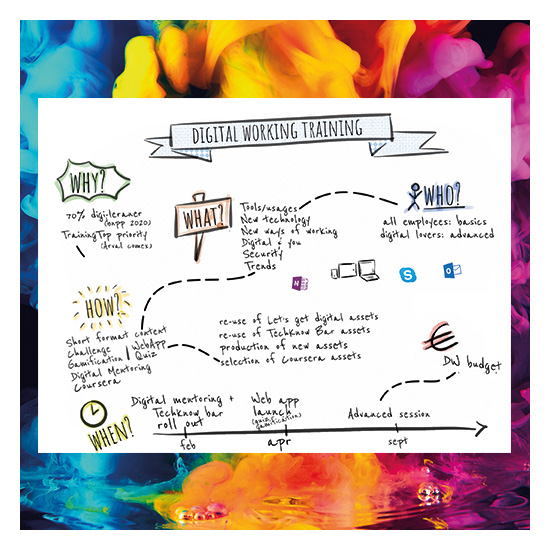 DIGITAL WORKING TRAINING
WHY?
70% digi-leraner
(bnpp 2020)
Training Top priority
(Arval comex)
WHAT?
Tools/usages
New technology
New ways of working
Digital & you
Security
Trends
WHO?
all employees: basics
digital lovers: advanced
N
S
O
HOW?
Short format content
Challenge
Gamification
Digital Mentoring
Coursera
WebApp
Quiz
re-use of Let's get digital assets
re-use of TechKnow Bar assets
production of new assets
selection of Coursera assets
€
DW budget
WHEN?
Digital mentoring +
Techknow bar
roll out
feb
Web app
launch
(quiz &
gamification)
apr
Advanced session
sept